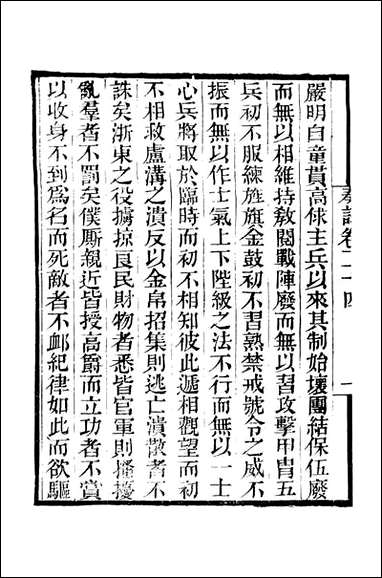 嚴明自童貫高俅主兵以來其制始壞團結保伍廢
而無以相維持敎閱戰陣廢而無以習攻擊甲胄五
兵初不服練旌旗金鼓初不習熟禁戒號令之威不
振而無以作士氣上下陛級之法不行而無以一士
心兵將取於臨時而初不相知彼此遞相觀望而初
不相救盧溝之潰反以金帛招集則逃亡潰散者不
誅矣浙東之役擄掠良民財物者悉皆官軍則擾
亂羣者不罰矣僕厮親近皆授高爵而立功者不賞
以收身不到爲名而死敵者不卹紀律如此而欲驅
奏議卷二十四
一